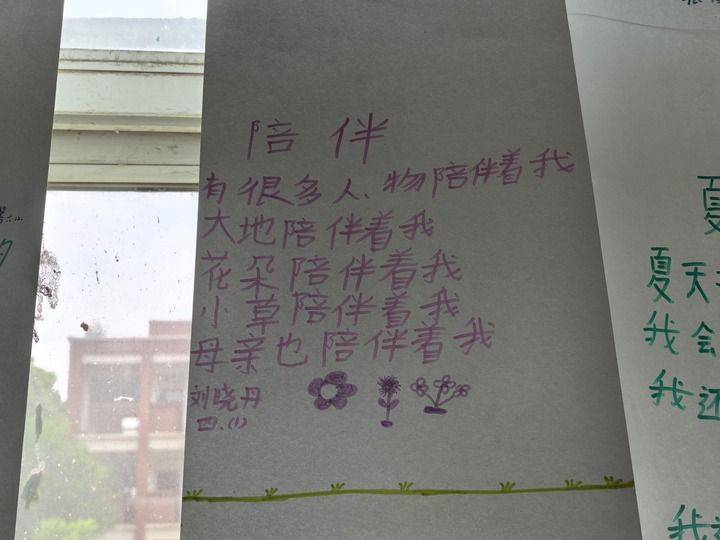 陪伴
有很多人、物陪伴着我
大地陪伴着我
花朵陪伴着我
小草陪伴着我
母亲也陪伴着我
刘晓丹
四.(1)
夏天
我会
我还